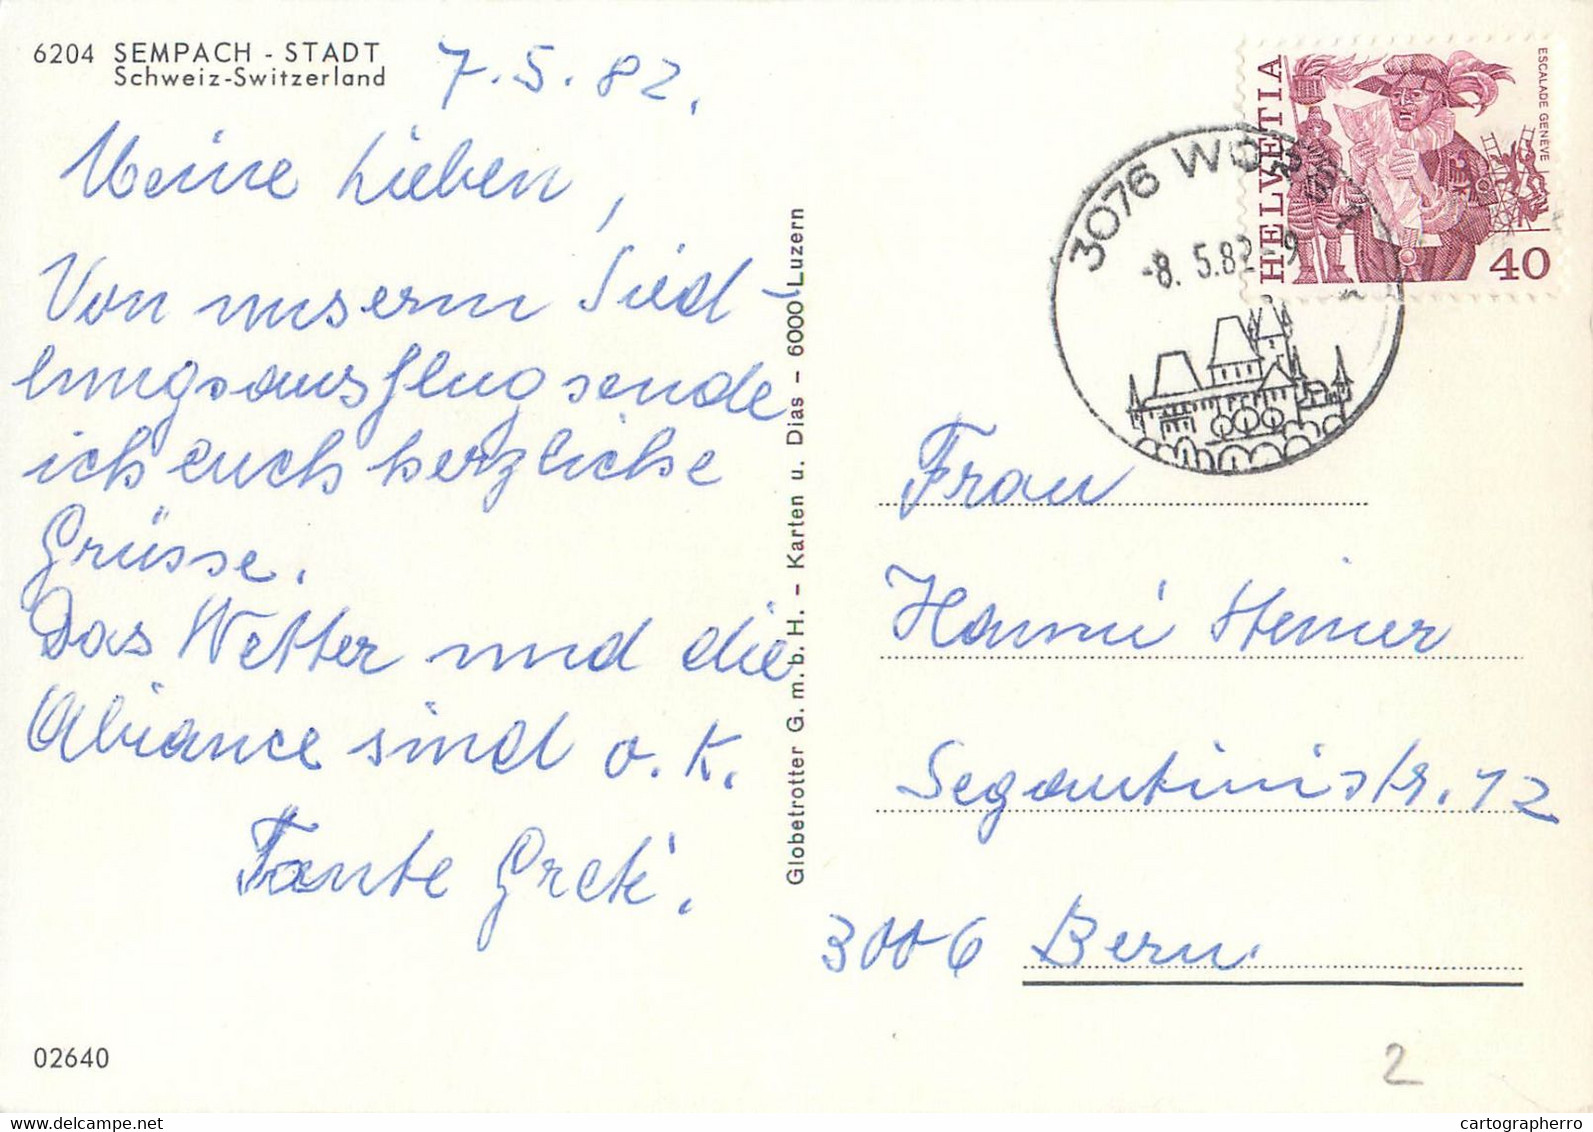 6204 SEMPACH - STADT
Schweiz-Switzerland
7.5.82.
Meine Lieben,
Von unserm Sied-
lungsausflug sende
ich euch herzliche
Grüsse.
Das Wetter und die
Abiance sind o.k.
Tante Greti.
02640
Globetrotter G.m.b.H. – Karten u. Dias – 6000 Luzern
HELVETIA
ESCALADE GENEVE
40
3076 WORB 1
-8. 5.82-9
Frau
Hanni Heiner
Segantinistr. 12
3006 Bern
2
www.delcampe.net
cartographerro